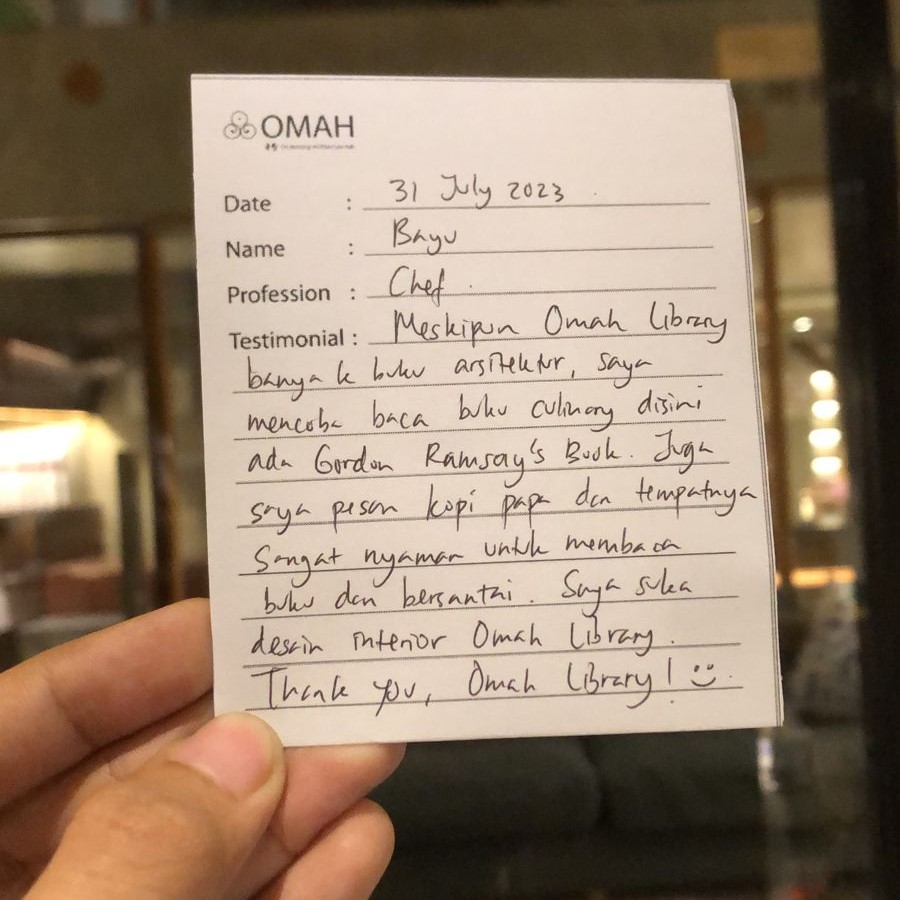 OMAH
Date : 31 July 2023
Name : Bayu
Profession : Chef
Testimonial : Meskipun Omah Library
banyak buku arsitektur, saya
mencoba baca buku culinary disini
ada Gordon Ramsay's Book. Juga
saya pesan kopi papa dan tempatnya
sangat nyaman untuk membaca
buku dan bersantai. Saya suka
desain interior Omah Library.
Thank you, Omah Library! :)